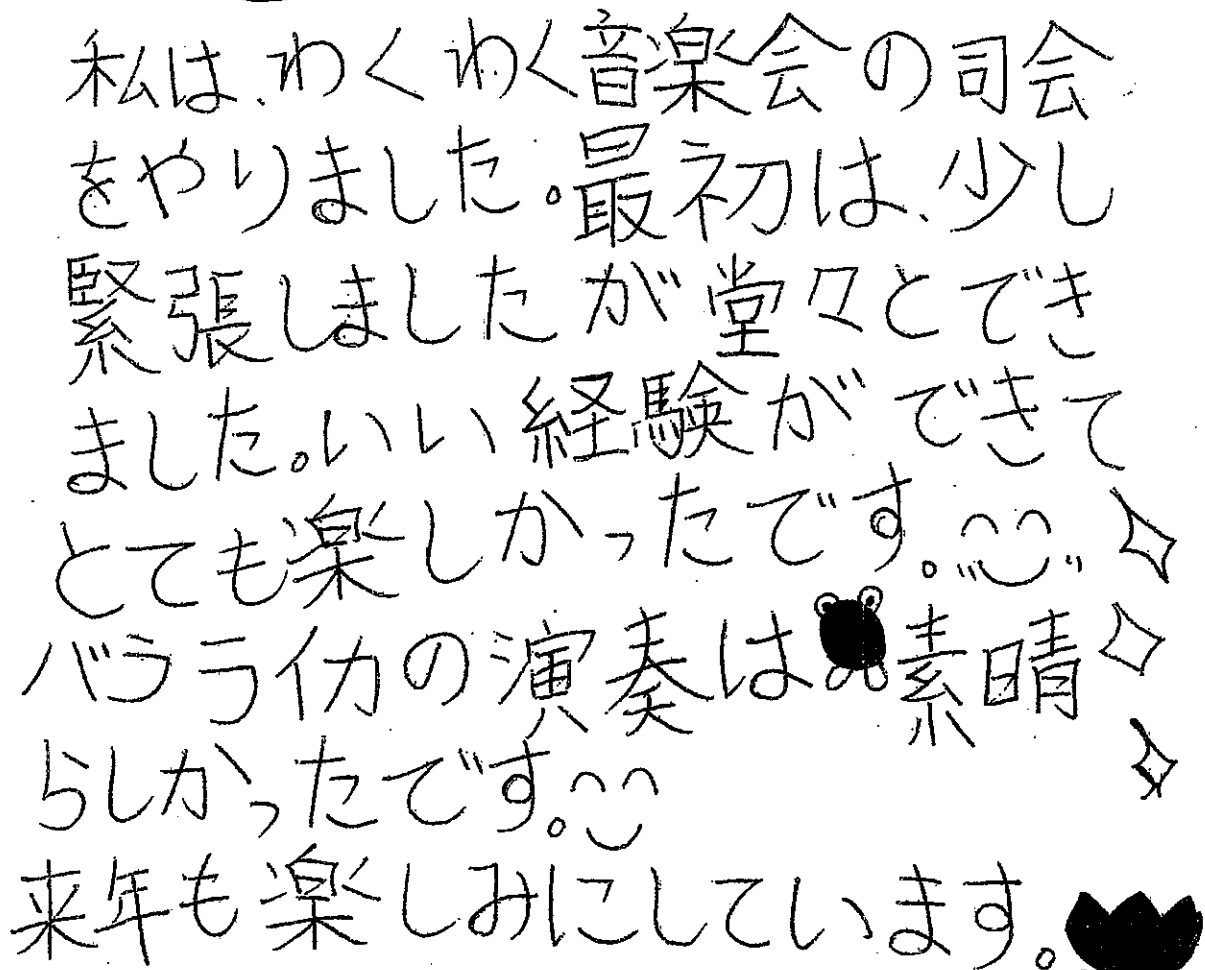 私は、わくわく音楽会の司会
をやりました。最初は、少し
緊張しましたが堂々とでき
ました。いい経験ができて
とても楽しかったです。
バラライカの演奏は素晴
らしかったです。
来年も楽しみにしています。